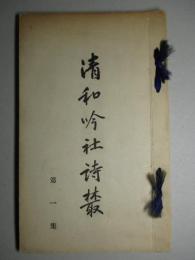 清和吟社詩叢
第一集